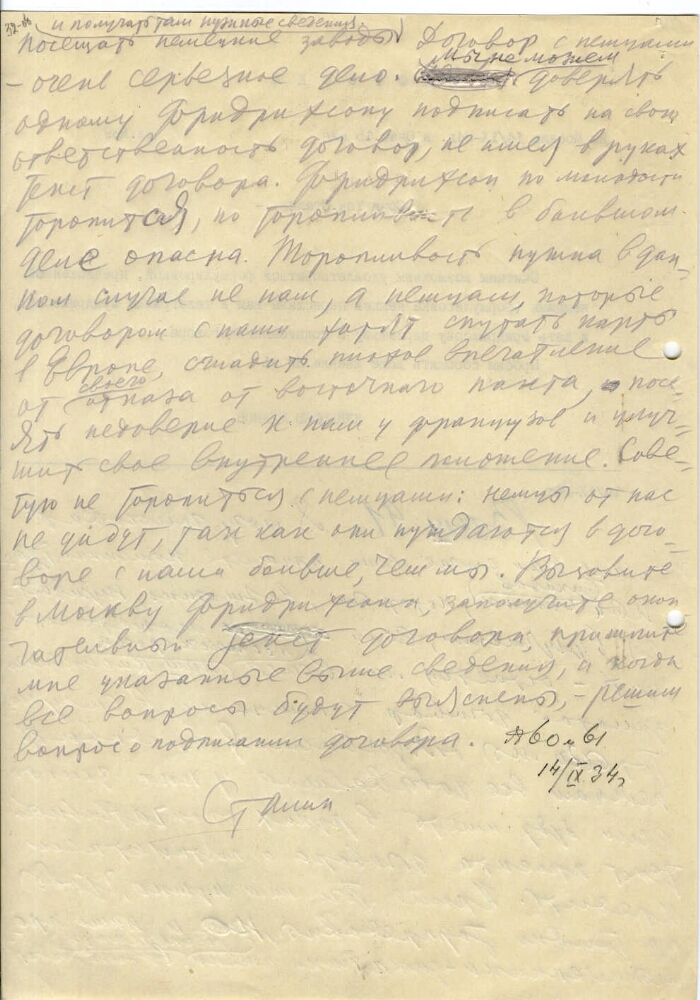 и получать там нужные сведения.
посещать немецкие заводы Договор с немцами
мы не можем
– очень серьезное дело. доверять
одному Фридрихсону подписать на свою
ответственность договор, не имея в руках
текст договора. Фридрихсон по молодости
торопится, но торопливость в большом
деле опасна. Торопливость нужна в дан-
ном случае не нам, а немцам, которые
договором с нами хотят спутать карты
в Европе, сгладить плохое впечатление
своего
от отказа от восточного пакта, посе-
ять недоверие к нам у французов и улуч-
шить свое внутреннее положение. Сове-
тую не торопиться с немцами: немцы от нас
не уйдут, так как они нуждаются в дого-
воре с нами больше, чем мы. Вызовите
в Москву Фридрихсона, заполучите окон
чательный текст договора, пришлите
мне указанные выше сведения, и когда
все вопросы будут выяснены, – решим
вопрос о подписании договора.
14/IX 34г
Сталин